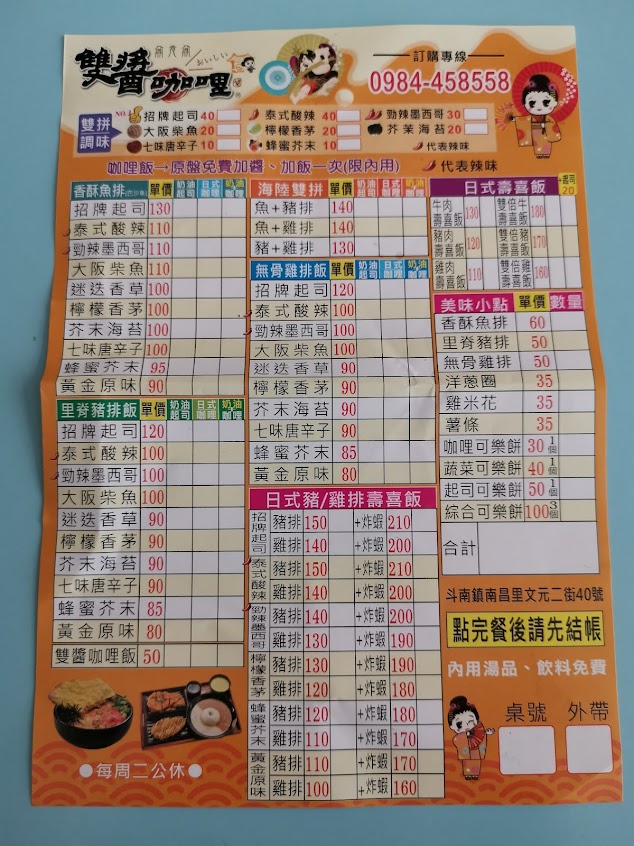 雙醬咖哩
おいしい
訂購專線
0984-458558
雙拼調味
NO.1 招牌起司 40 泰式酸辣 40 勁辣墨西哥 30
大阪柴魚 20 檸檬香茅 20 芥茉海苔 20
七味唐辛子 10 蜂蜜芥末 10 代表辣味
咖哩飯→原盤免費加醬、加飯一次(限內用) 代表辣味
香酥魚排 單價 奶油起司 日式咖哩 奶油咖哩
招牌起司 130
泰式酸辣 110
勁辣墨西哥 110
大阪柴魚 110
迷迭香草 100
檸檬香茅 100
芥末海苔 100
七味唐辛子 100
蜂蜜芥末 95
黃金原味 90
里脊豬排飯 單價 奶油起司 日式咖哩 奶油咖哩
招牌起司 120
泰式酸辣 100
勁辣墨西哥 100
大阪柴魚 100
迷迭香草 90
檸檬香茅 90
芥末海苔 90
七味唐辛子 90
蜂蜜芥末 85
黃金原味 80
雙醬咖哩飯 50
●每周二公休●
海陸雙拼 單價 奶油起司 日式咖哩 奶油咖哩
魚+豬排 140
魚+雞排 140
豬+雞排 130
無骨雞排飯 單價 奶油起司 日式咖哩 奶油咖哩
招牌起司 120
泰式酸辣 100
勁辣墨西哥 100
大阪柴魚 100
迷迭香草 90
檸檬香茅 90
芥末海苔 90
七味唐辛子 90
蜂蜜芥末 85
黃金原味 80
日式豬/雞排壽喜飯
招牌起司 豬排 150 +炸蝦 210
雞排 140 +炸蝦 200
泰式酸辣 豬排 150 +炸蝦 210
雞排 140 +炸蝦 200
勁辣墨西哥 豬排 140 +炸蝦 200
雞排 130 +炸蝦 190
檸檬香茅 豬排 130 +炸蝦 190
雞排 120 +炸蝦 180
蜂蜜芥末 豬排 120 +炸蝦 180
雞排 110 +炸蝦 170
黃金原味 豬排 110 +炸蝦 170
雞排 100 +炸蝦 160
日式壽喜飯 +起司20
牛肉壽喜飯 130 雙倍牛壽喜飯 180
豬肉壽喜飯 120 雙倍豬壽喜飯 170
雞肉壽喜飯 110 雙倍雞壽喜飯 160
美味小點 單價 數量
香酥魚排 60
里脊豬排 50
無骨雞排 50
洋蔥圈 35
雞米花 35
薯條 35
咖哩可樂餅 30 1個
蔬菜可樂餅 40 1個
起司可樂餅 50 1個
綜合可樂餅 100 3個
合計
斗南鎮南昌里文元二街40號
點完餐後請先結帳
內用湯品、飲料免費
桌號 外帶